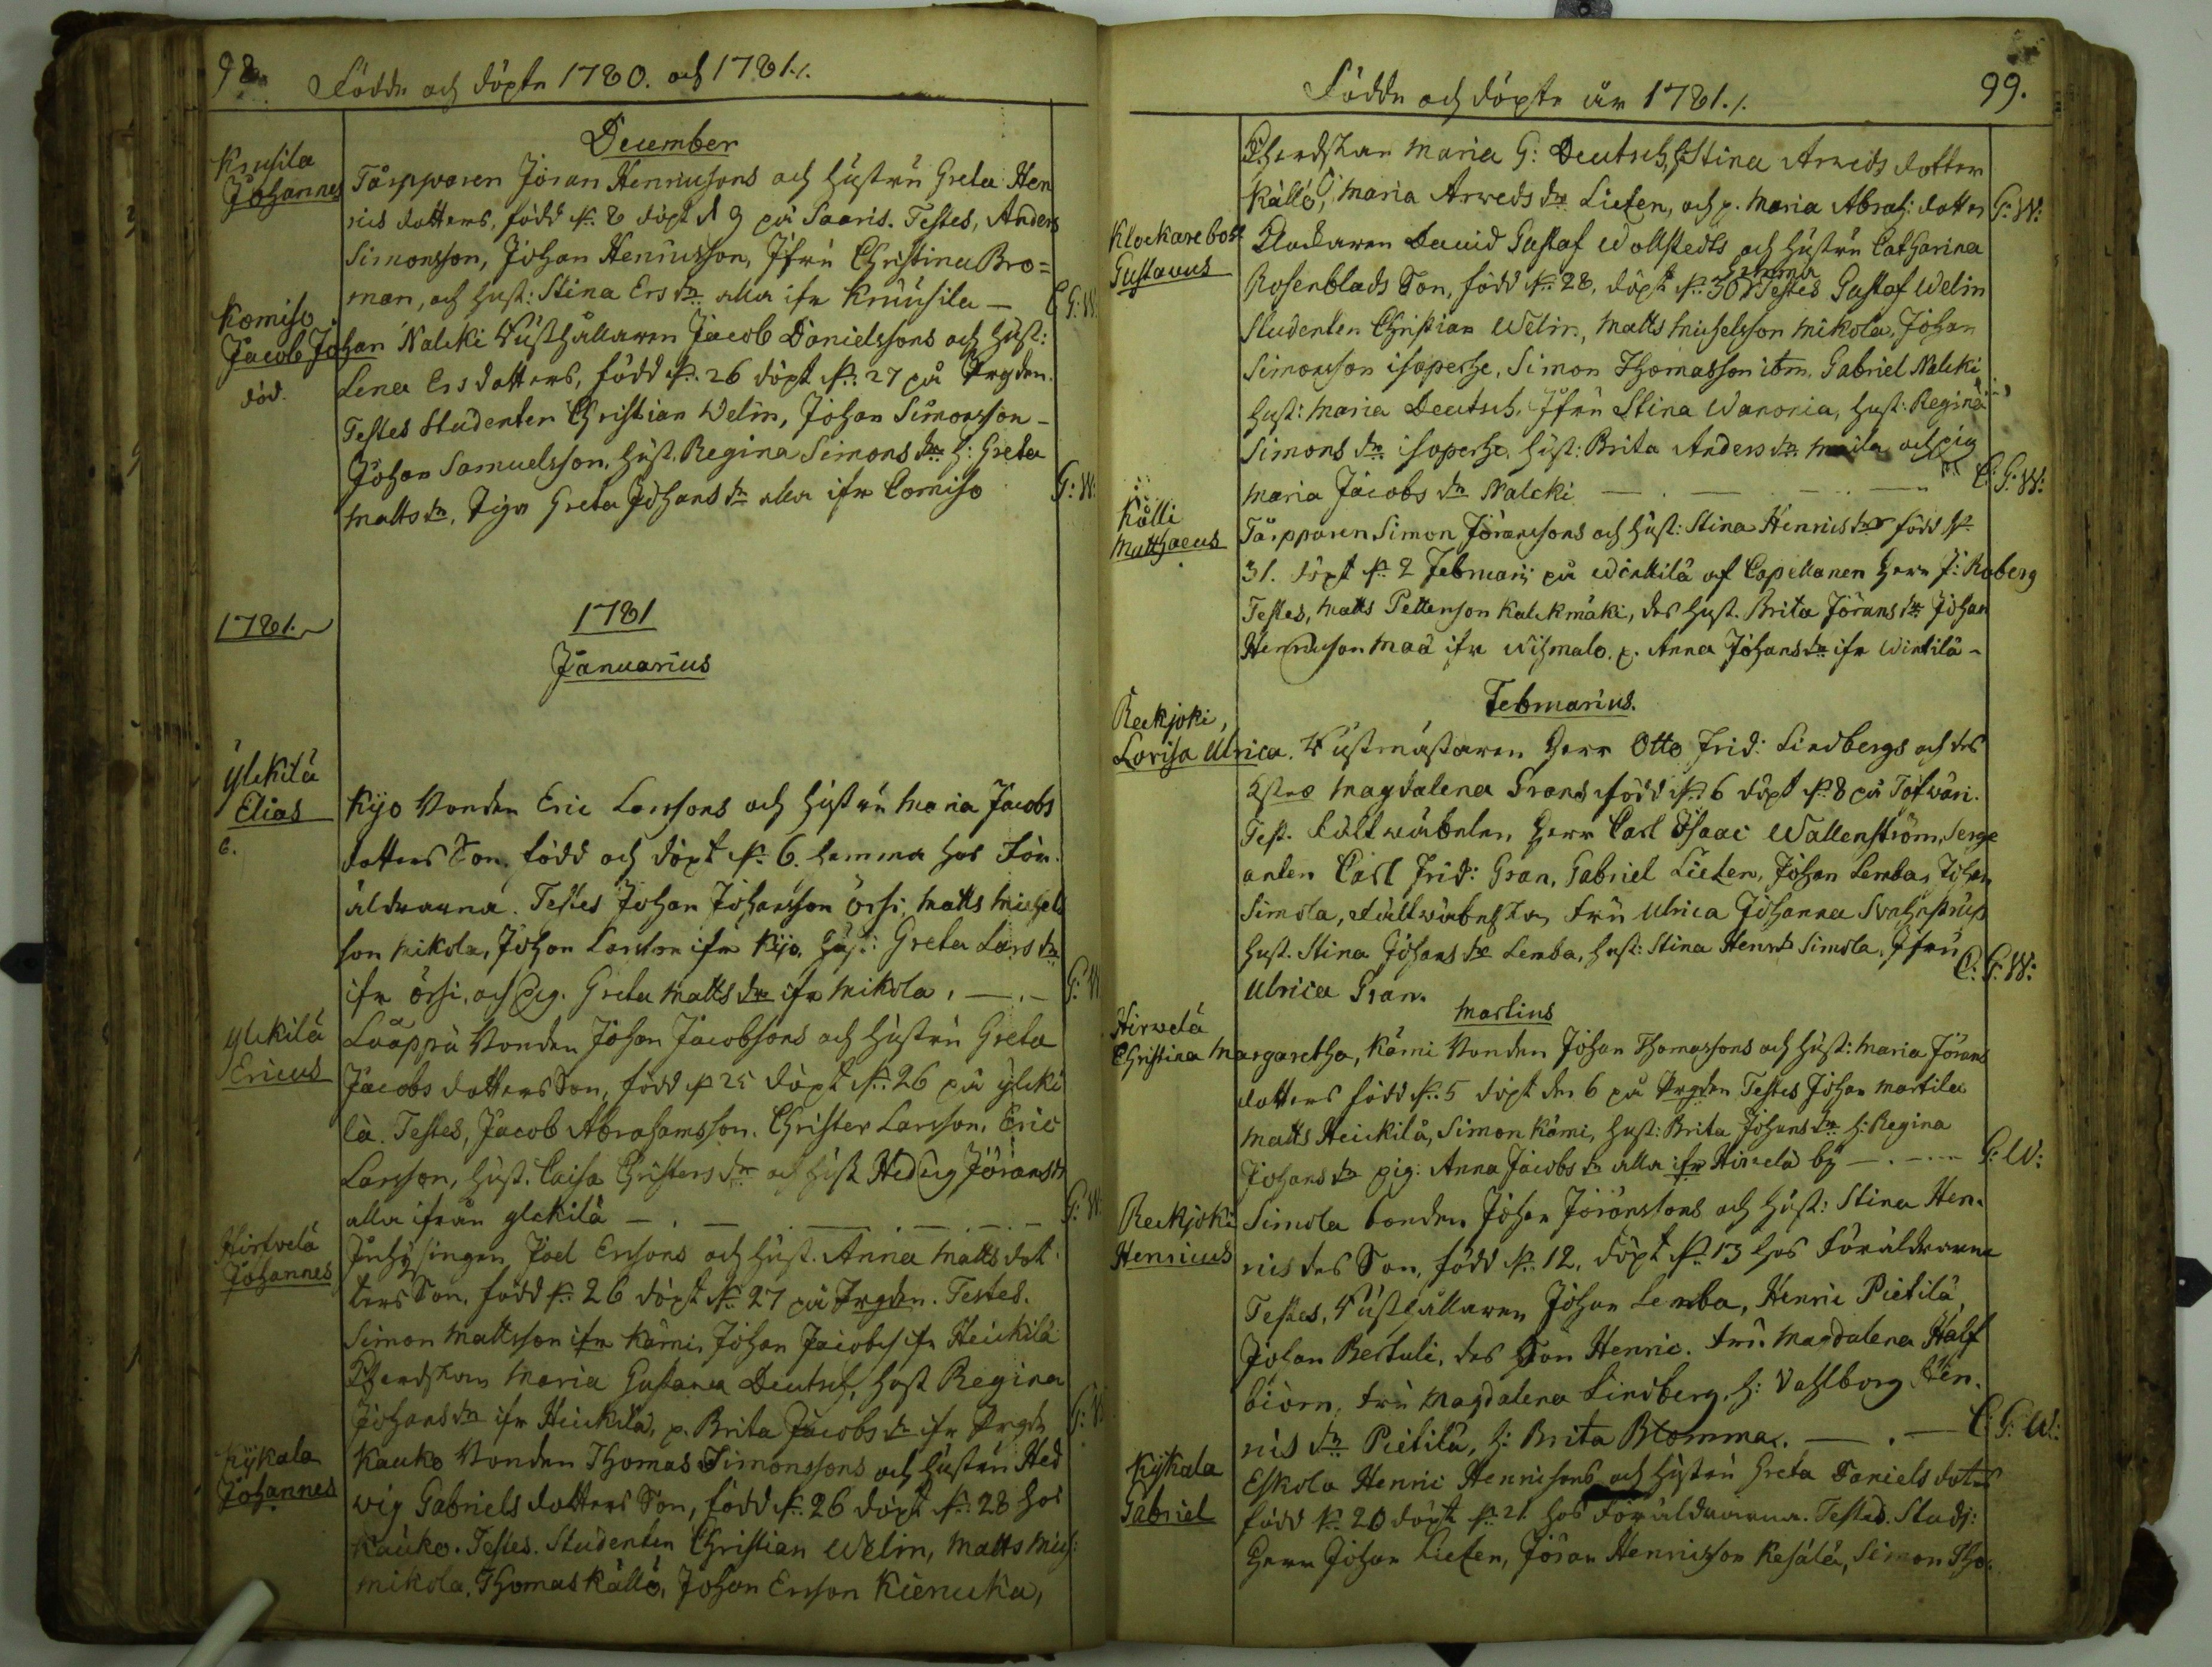 98. Födde och döpte 1780. och 1781./.
December
Krusila
Johannes
Tårpparen Jöran Henricsons och hustru Greta Hen
rics dotters, född d. 8 döpt d 9 på Saaris. Testes, Anders
Simonsson, Johan Henricsson, Jfru Christina Bro=
man, och hust: Stina Ers dr alla ifr Kruusila — C G: W.
Komiso
Jacob Johan
död.
Nalcki Rusthållaren Jacob Danielssons och hust:
Lena Ersdotters, född d. 26 döpt d. 27 på Prgden.
Testes Studenten Christian Welin, Johan Simonsson -
Johan Samuelsson, hust. Regina Simons dr h: Greta
Matts dr, Piga Greta Johans dr alla ifr Comiso G: W:
1781.
1781
Januarius
Ylckilä
Elias
6.
Kyo Bonden Eric Larssons och hustru Maria Jacobs
dotters Son, född och döpt d. 6. hemma hos För
äldrarna. Testes Johan Johansson örsi, Matts Michels
son Mikola, Johan Larsson ifr Kyo, hust: Greta Lars dr
ifr örsi, och Pig. Greta Matts dr ifr Mikola. —.— G: W
Ylckilä
Ericus
Luappu Bonden Johan Jacobsons och hustru Greta
Jacobs dotters Son, född d 25 döpt d. 26 på ylcki
lä. Testes, Jacob Abrahamsson. Christer Larsson, Eric
Larsson, hust. Caisa Christers dr och hust Hedvig Jörans dr
alla ifrån ylckilä —.—.—.—.— G: W
Hirfvelä
Johannes
Inhysingen Joel Ersons och hust. Anna Matts dot
ters Son, född d. 26 döpt d. 27 på Prgden. Testes.
Simon Mattsson ifr Kärni, Johan Jacobs ifr Heickilä
Maria Gustava Deutsch, hust Regina
Johans dr ifr Heickilä, p. Brita Jacobs dr ifr Prgdn G: W
Kykala
Johannes
Kauko Bonden Thomas Simonssons och hustru Hed
vig Gabriels dotters Son, född d. 26 döpt d. 28 hos
Kauko. Testes. Studenten Christian Welin, Matts Mich:
Mikola, Thomas Källö, Johan Ersson Kierucka,
Födde och döpte år 1781./. 99.
Maria G: Deutsch, h. Stina Arweds dotter
Källö, Maria Arweds dr Lieten, och p. Maria Abrah: dotter G: W:
Klockarebohl
Gustavus
Klockaren David Gustaf Wollstedts och hustru Catharina
Rosenblads Son, född d. 28, döpt d. 30 hemma Testes Gustaf Welin
Studenten Christian Welin, Matts Michelsson Mikola, Johan
Simonsson isoperhe, Simon Thomasson ibm. Gabriel Nalcki
hust: Maria Deutsch. Jfru Stina Wanonia, hust: Regina
Simons dr isoperhe, hust: Brita Anders dr och pig
Maria Jacobs dr Nalcki —.—.— C: G: W:
Källi
Matthaeus
Tårpparen Simon Jöranssons och hust: Stina Henrics dr född d.
31. döpt d. 2 Februarij på Wintilä af Capellanen Herr J: Roberg
Testes, Matts Pettersson Kalckmäki, des hust. Brita Jörans dr Johan
Henricsson Maa ifr Wihmalo. p. Anna Johans dr ifr Wintilä -
Februarius.
Reckjoki,
Lovisa Ulrica.
Rustmästaren Herr Otto Frid: Lindbergs och des
Magdalena Grans född d. 6 döpt d. 8 på Tötwäri.
Test. Fältwäbelen Herr Carl Isaac Wallenström, Serge
anten Carl Frid: Gran, Gabriel Lieten, Johan Lemba, Johan
Simola, Fru Ulrica Johanna
hust. Stina Johans dr Lemba, hust: Stina Henrics Simola, Jfru
Ulrica Gran. C: G: W:
Martius
Hirvelä
Christina Margaretha,
Kärni Bonden Johan Thomassons och hust: Maria Jörans
dotters född d. 5 döpt den 6 på Prgden Testes Johan Martila
Matts Heickilä, Simon Kärni, hust: Brita Johans dr h: Regina
Johans dr pig: Anna Jacobs dr alla ifr Hirvelä by —.— G: W:
Reckjoki
Henricus
Simola bonden Johan Jöranssons och hust: Stina Hen-
rics drs Son, född d. 12. döpt d. 13 hos Föräldrarne
Testes, Rusthållaren Johan Lemba, Henric Pietilä,
Johan Bertuli, des Son Henric. Fru Magdalena Half
biörn, Fru Magdalena Lindberg, h: Vahlborg Hen-
rics dr Pietilä, h: Brita Blomma. —.— C: G: W:
Kykala
Gabriel
Eskola Henric Henricsons och hustru Greta Daniels dotrs
född d. 20 döpt d. 21 hos Föräldrarna. Testes. Studj:
Herr Johan Lieten, Jöran Henricsson Kesälä, Simon Tho-